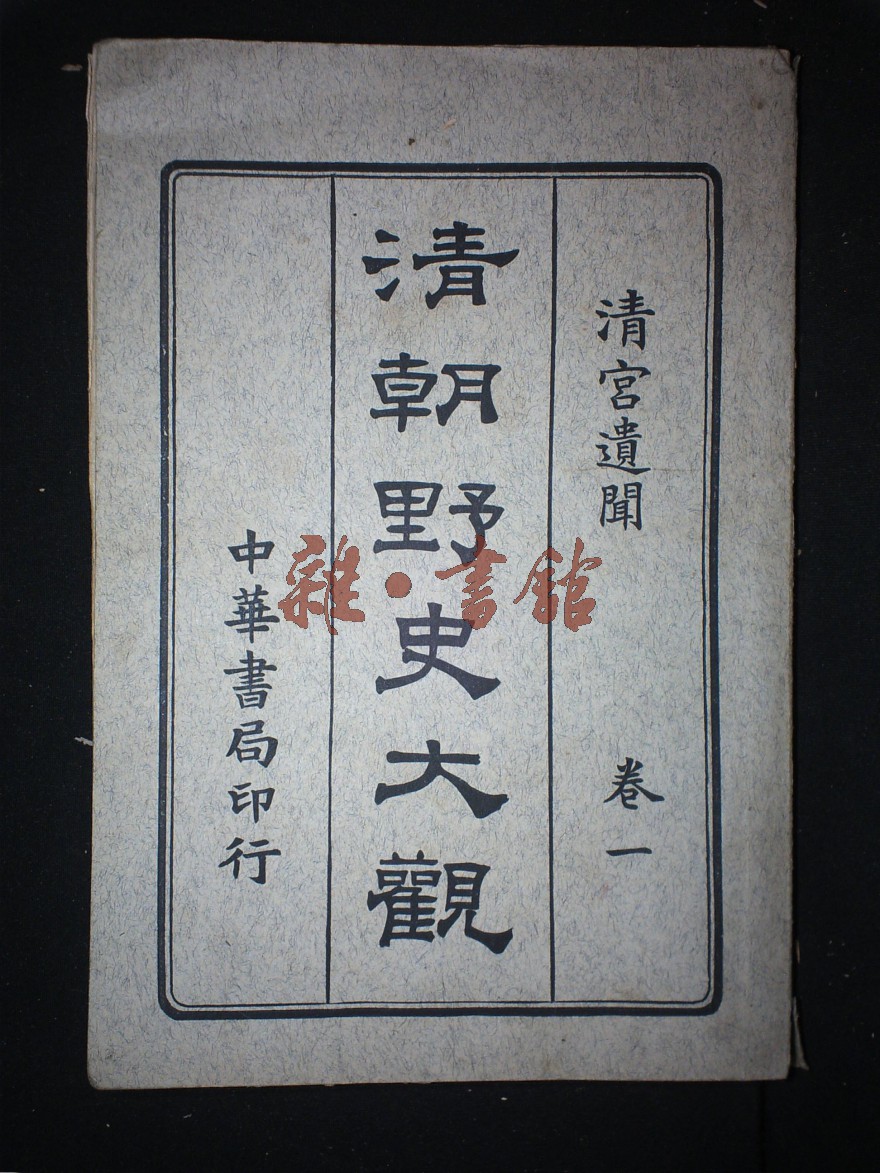 清宮遺聞 卷一
清朝野史大觀
中華書局印行
雜·書館